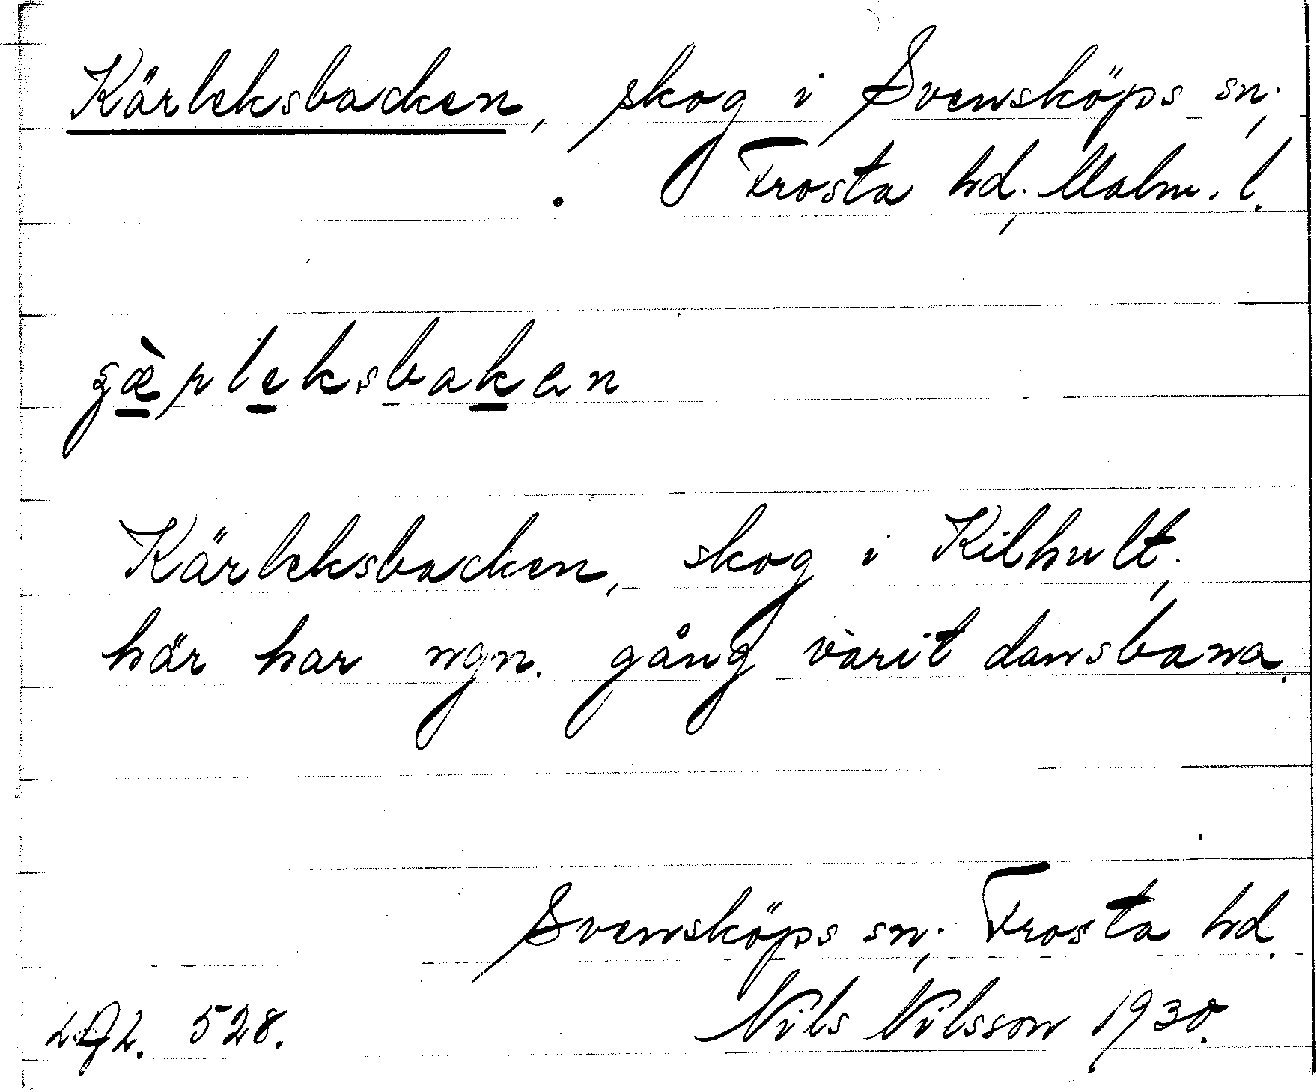 Kärleksbacken, skog i Svensköps sn;
Frosta hd, Malm. l.
gæ̀rleksbaken
Kärleksbacken, skog i Kilhult;
här har ngn. gång varit dansbana.
Svensköps sn; Frosta hd.
528. Nils Nilsson 1930.